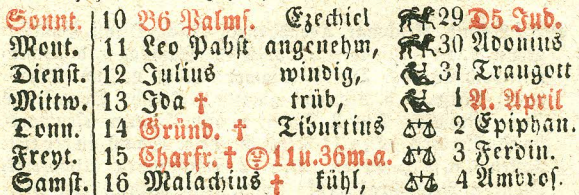 Sonnt. 10 B6 Palms. Ezechiel 29 D5 Jud.
Mont. 11 Leo Pabst angenehm, 30 Adonius
Dienst. 12 Julius windig, 31 Traugott
Mittw. 13 Ida † trüb, 1 A. April
Donn. 14 Gründ. † Tiburtius 2 Epiphan.
Freyt. 15 Charfr. † 11u.36m.a. 3 Ferdin.
Samst. 16 Malachius † kühl, 4 Ambros.